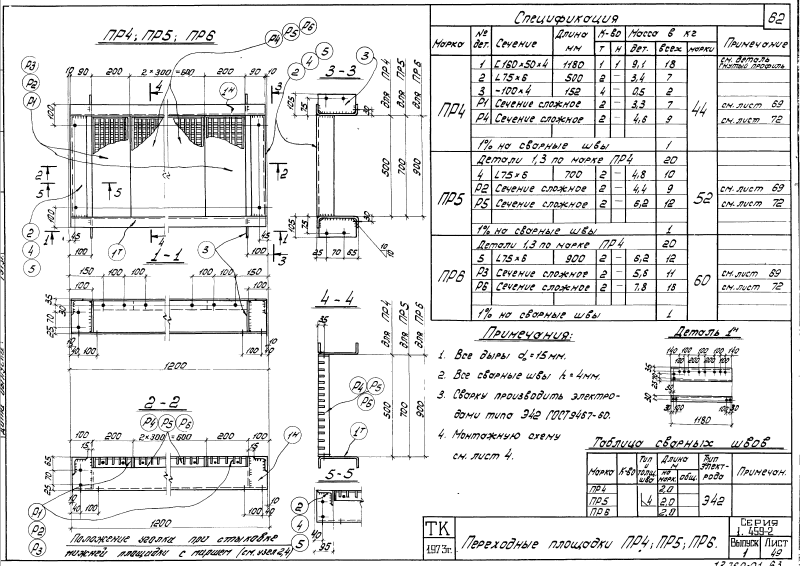 ПР4; ПР5; ПР6
Р4
Р5
Р6
Р3
Р2
Р1
10 90 200 2×300=600 200 90 10
100
1Н
2 2
5 5
2
4
5
1 1
45 45
100 100
1Т
3
4
1-1
150 100 100 100 100 150
35
30
25 70
10 40 100 100 40 10
1200
2-2
Р4 Р5 Р6
100 200 2×300=600 200 100
15 15
65
70
25
1Н
Р1
Р2
Р3
1200
Положение уголка при стыковке
нижней площадки с маршем (см. узел 2,4)
3-3
3
105 75
30
для ПР4
для ПР5
для ПР6
500 700 900
25 70 65
10
10
4-4
35
для ПР4
для ПР5
для ПР6
Р4 Р5
Р6
500 700 900
1Т
5-5
2
4
5
40
95
Спецификация
62
Марка № дет. Сечение Длина мм К-во т н Масса в кг дет. всех марки Примечание
ПР4 44
1 С160×50×4 1180 1 1 9,1 18 см. деталь гнутый профиль
2 L75×6 500 2 – 3,4 7
3 -100×4 152 4 – 0,5 2
Р1 Сечение сложное 2 – 3,3 7 см. лист 69
Р4 Сечение сложное 2 – 4,6 9 см. лист 72
1% на сварные швы 1
ПР5 52
Детали 1,3 по марке ПР4 20
4 L75×6 700 2 – 4,8 10
Р2 Сечение сложное 2 – 4,4 9 см. лист 69
Р5 Сечение сложное 2 – 6,2 12 см. лист 72
1% на сварные швы 1
ПР6 60
Детали 1,3 по марке ПР4 20
5 L75×6 900 2 – 6,2 12
Р3 Сечение сложное 2 – 5,6 11 см. лист 69
Р6 Сечение сложное 2 – 7,8 16 см. лист 72
1% на сварные швы 1
Примечания:
1. Все дыры d=15мм.
2. Все сварные швы h=4мм.
3. Сварку производить электро-
дами типа Э42 ГОСТ 9467-60.
4. Монтажную схему
см. лист 4.
Деталь 1н
140 100 100 140
200 200
35
25 70
30 30
30 100 100 30
1180
Таблица сварных швов
Марка К-во Тип и толщ. шва Длина м на марк. общ. Тип электрода Примечан.
ПР4 2,0
ПР5 4 2,0 Э42
ПР6 2,0
ТК
1973г.
Переходные площадки ПР4; ПР5; ПР6.
Серия
1.459-2
Выпуск Лист
1 49